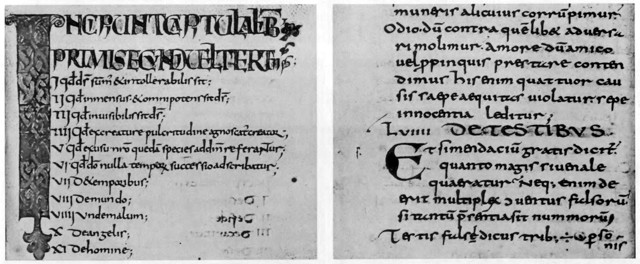 INCPRUNT CAPTULA LIB
PRIMI SEQUNDI VEL TER
I qđ dš sum & intollerabilis sit;
II qđ inmensus & omnipotens sit dš;
III qđ invisibilis sit dš;
IIII qđ ex creature pulcritudine agnoscat creator;
V qđ ex usu nr̄o quedā species ad dm̄ referantur;
VI qđ dō nulla tempor successio adscribatur;
VII De temporibus;
VIII De mundo;
VIIII Unde malum;
X De angelis;
XI De homine;
muneris alicuius corrūpimur.
Odio dū contra quēlibet adversa
ri molimur. Amore dū amico
vel ppinquis prestare conten
dimus his enim quattuor cau
sis saepe aequitas violatur. sepe
innocentia leditur;
LVIIII DE TESTIBUS
Et si mendaciū gratis dicit.
quanto magis si venale
quaeratur. Neq; enim de
erit multiplex ventus falsorū
si tantū presentia sit nummorū
Tertis falsidicus trib; ÷ pso
nis